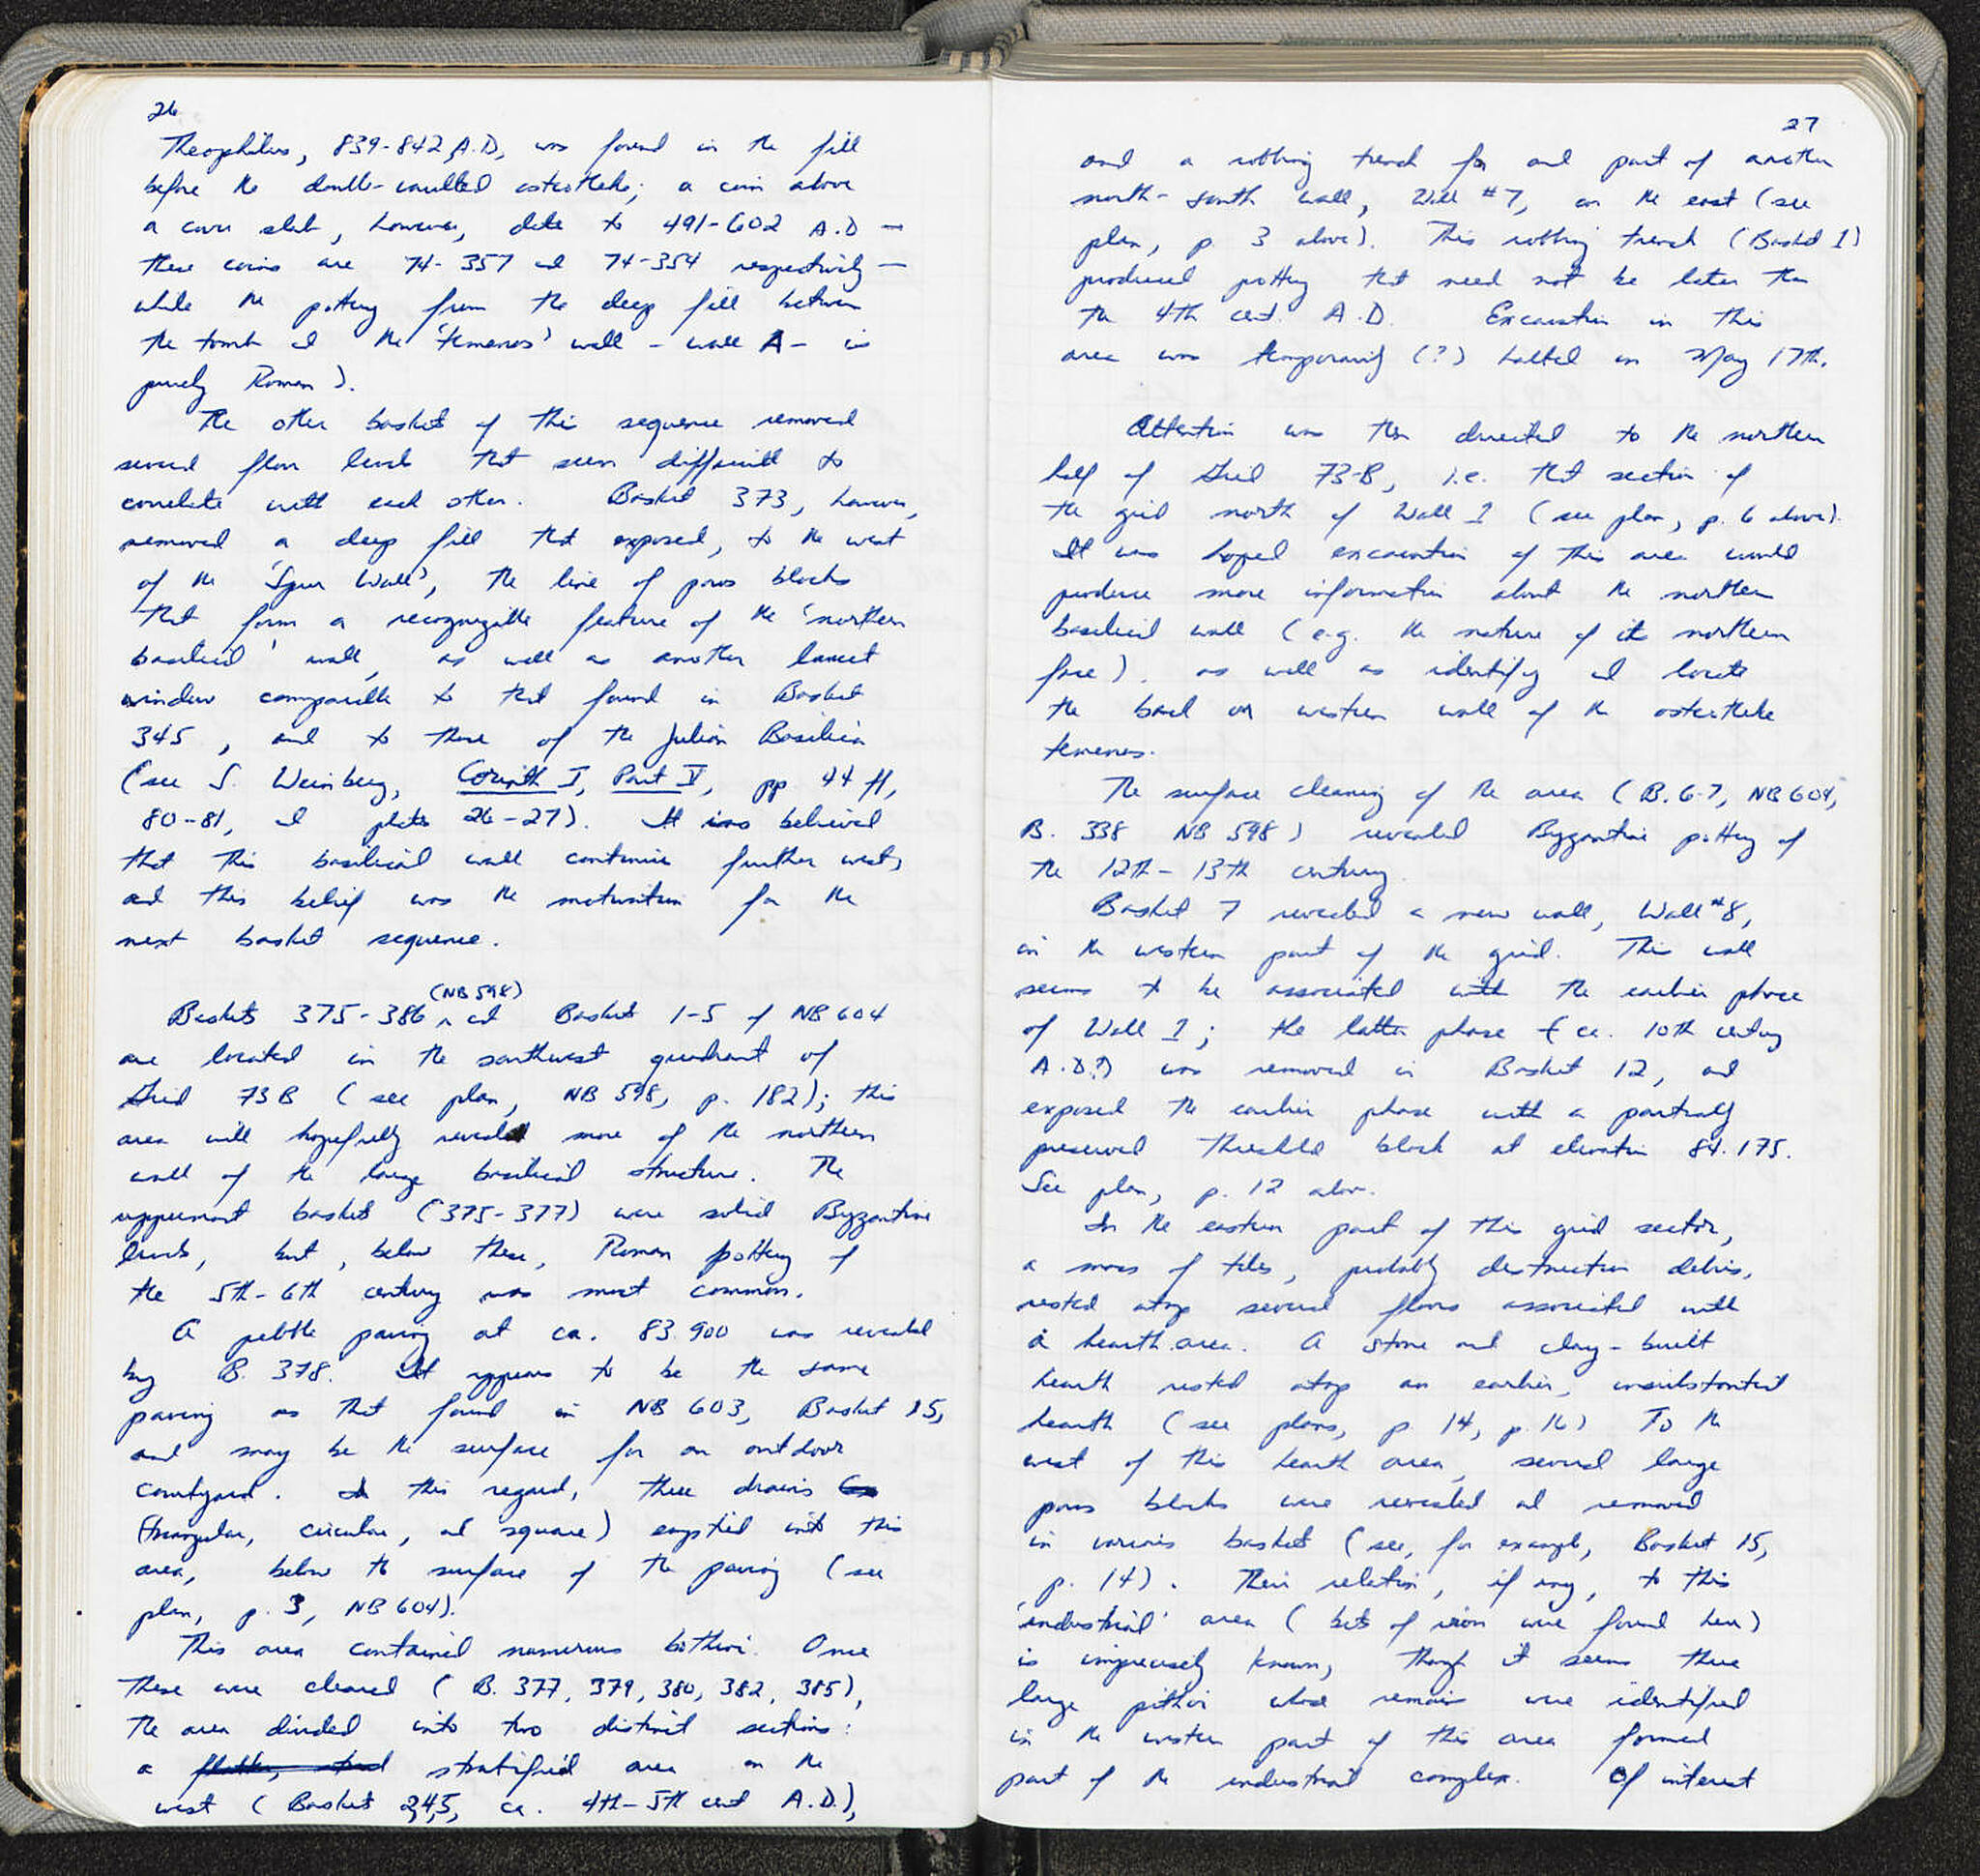 26
Theophilus, 839-842 A.D, was found in the fill
before the double-vaulted osteotheke; a coin above
a cover slab, however, date to 491-602 A.D —
these coins are 74-357 and 74-354 respectively —
while the pottery from the deep fill between
the tomb and the 'temenos' wall - wall A - is
purely Roman).
The other baskets of this sequence removed
several floor levels that seem difficult to
correlate with each other. Basket 373, however,
removed a deep fill that exposed, to the west
of the 'Spur Wall', the line of poros blocks
that form a recognizable feature of the 'northern
basilical' wall, as well as another lancet
window comparable to that found in Basket
345, and to those of the Julian Basilica
(see S. Weinberg, Corinth I, Part V, pp 44 ff,
80-81, and plates 26-27). It was believed
that this basilical wall continue further west,
and this belief was the motivation for the
next basket sequence.
(NB 598)
Baskets 375-386 ^ and Baskets 1-5 of NB 604
are located in the southwest quadrant of
Grid 73B (see plan, NB 598, p. 182); this
area will hopefully reveal more of the northern
wall of the large basilical structure. The
uppermost baskets (375-377) were solid Byzantine
levels, but, below these, Roman pottery of
the 5th-6th century was most common.
A pebble paving at ca. 83.900 was revealed
by B. 378. It appears to be the same
paving as that found in NB 603, Basket 15,
and may be the surface for an outdoor
courtyard. In this regard, three drains
(triangular, circular, and square) emptied into this
area, below the surface of the paving (see
plan, p. 3, NB 604).
This area contained numerous bothroi. Once
these were cleared (B. 377, 379, 380, 382, 385),
the area divided into two distinct sections:
a stratified area on the
west (Basket 2,4,5, ca. 4th-5th cent A.D.),
27
and a robbing trench for and part of another
north-south wall, Wall #7, on the east (see
plan, p. 3 above). This robbing trench (Basket 1)
produced pottery that need not be later than
the 4th cent. A.D. Excavation in this
area was temporarily (?) halted on May 17th.
Attention was then directed to the northern
half of Grid 73-B, i.e. that section of
the grid north of Wall 1 (see plan, p. 6 above).
It was hoped excavation of this area would
produce more information about the northern
basilical wall (e.g. the nature of its northern
face), as well as identify and locate
the back or western wall of the osteotheke
temenos.
The surface cleaning of the area (B. 6-7, NB 604,
B. 338 NB 598) revealed Byzantine pottery of
the 12th-13th century.
Basket 7 revealed a new wall, Wall #8,
in the western part of the grid. This wall
seems to be associated with the earlier phase
of Wall 1; the latter phase (ca. 10th century
A.D.?) was removed in Basket 12, and
exposed the earlier phase with a partially
preserved threshold block at elevation 84.175.
See plan, p. 12 above.
In the eastern part of this grid sector,
a mass of tiles, probably destruction debris,
rested atop several floors associated with
a hearth area. A stone and clay-built
hearth rested atop an earlier, unsubstantial
hearth (see plans, p. 14, p. 16) To the
west of this hearth area, several large
poros blocks were revealed and removed
in various baskets (see, for example, Basket 15,
p. 14). Their relation, if any, to this
'industrial' area (bits of iron were found here)
is imprecisely known, though it seems three
large pithoi whose remains were identified
in the western part of this area formed
part of the industrial complex. Of interest